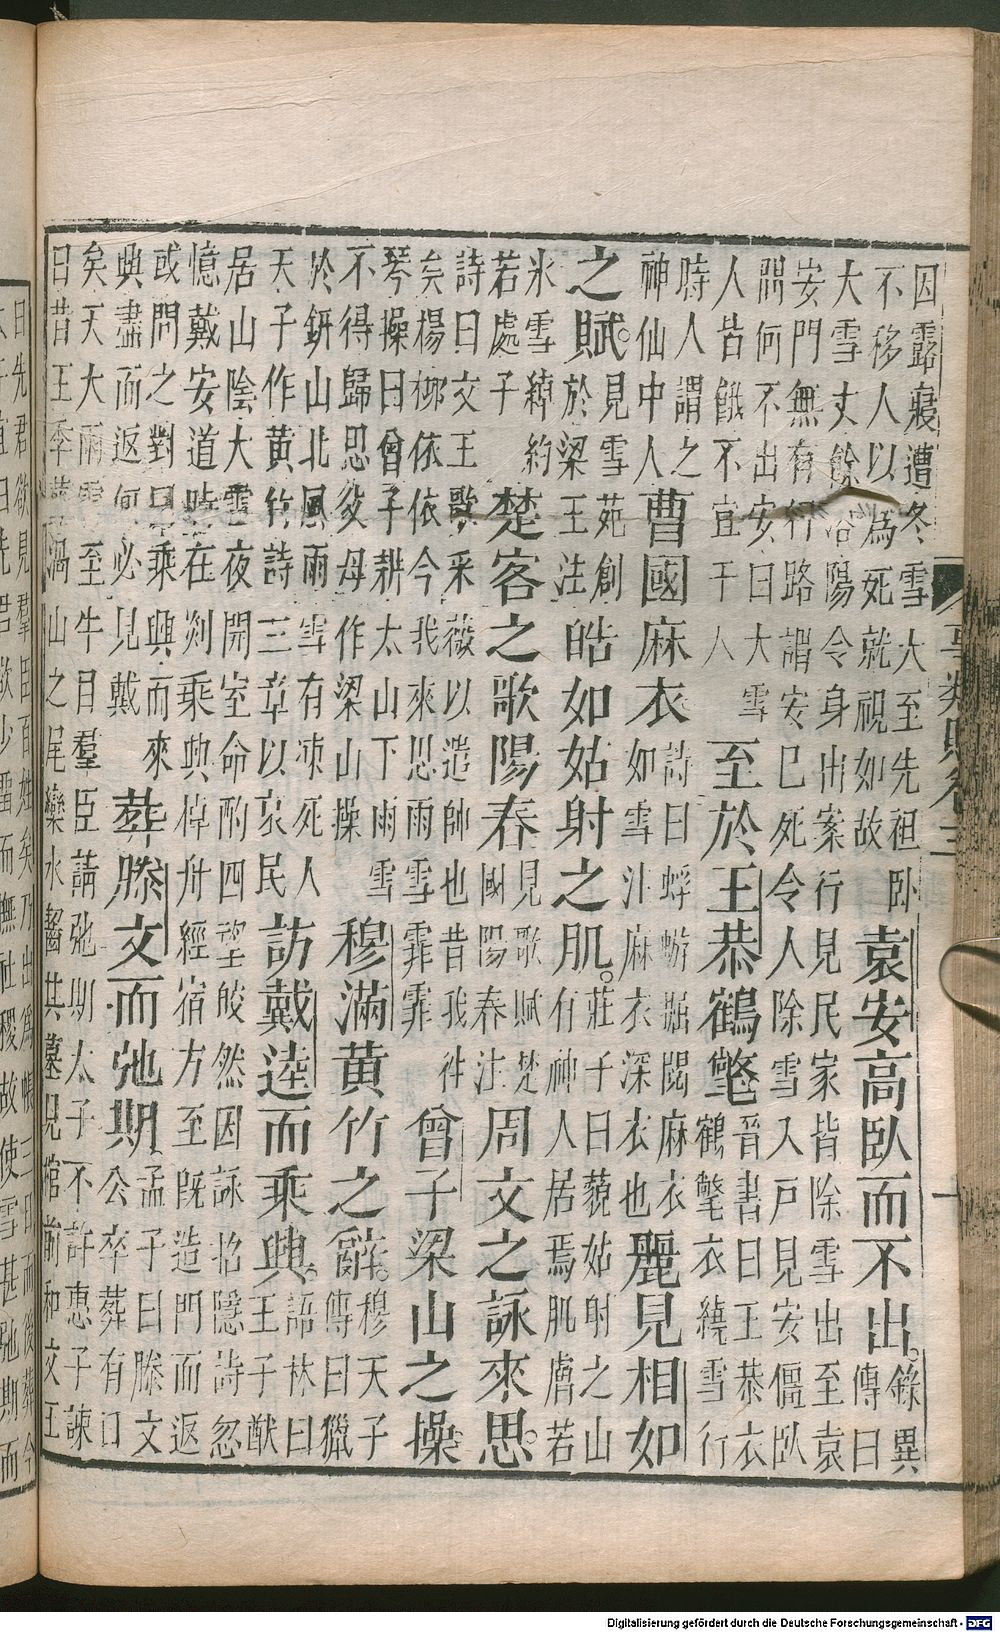 事類賦卷三
因露寢遭冬雪大至先袒卧
不移人以為死就視如故
袁安高臥而不出。
錄異
傳曰
大雪丈餘洛陽令身出案行見民家皆除雪出至袁
安門無有行路謂安已死令人除雪入戶見安僵臥
問何不出安曰大雪
人皆餓不宜干人
至於王恭鶴氅
晉書曰王恭衣
鶴氅衣繞雪行
時人謂之
神仙中人
曹國麻衣
詩曰蜉蝣掘閱麻衣
如雪注麻衣深衣也
麗見相如
之賦。
見雪苑創
於梁王注
皓如姑射之肌。
莊子曰藐姑射之山
有神人居焉肌膚若
氷雪綽約
若處子
楚客之歌陽春
見歌賦楚
國陽春注
周文之詠來思。
詩曰文王歌采薇以遣帥也昔我徃
矣楊栁依依今我來思雨雪霏霏
曾子梁山之操。
琴操曰曾子耕太山下雨雪
不得歸思父母作梁山操
穆滿黃竹之辭。
穆天子
傳曰獵
於鈃山北風雨雪有凍死人
天子作黃竹詩三章以哀民
訪戴逵而乘興。
語林曰
王子猷
居山陰大雪夜開室命酌四望皎然因詠招隱詩忽
憶戴安道時在剡乘興棹舟經宿方至既造門而返
或問之對曰乘興而來
興盡而返何必見戴
葬滕文而弛期
孟子曰滕文
公卒葬有日
矣天大雨雪至牛目羣臣請弛期太子不許惠子諫
曰昔王季葬渦山之尾欒水齧其墓見棺前和文王
曰先君欲見羣臣百姓矣乃出為帳三日而後葬今
太子宜曰先君欲少留而撫社稷故使雪甚弛期而
Digitalisierung gefördert durch die Deutsche Forschungsgemeinschaft - DFG